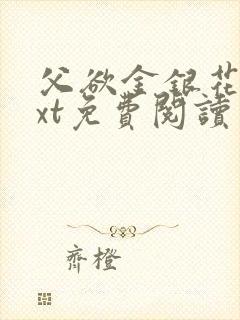 父欲金银花
xt免費閱讀
齊橙